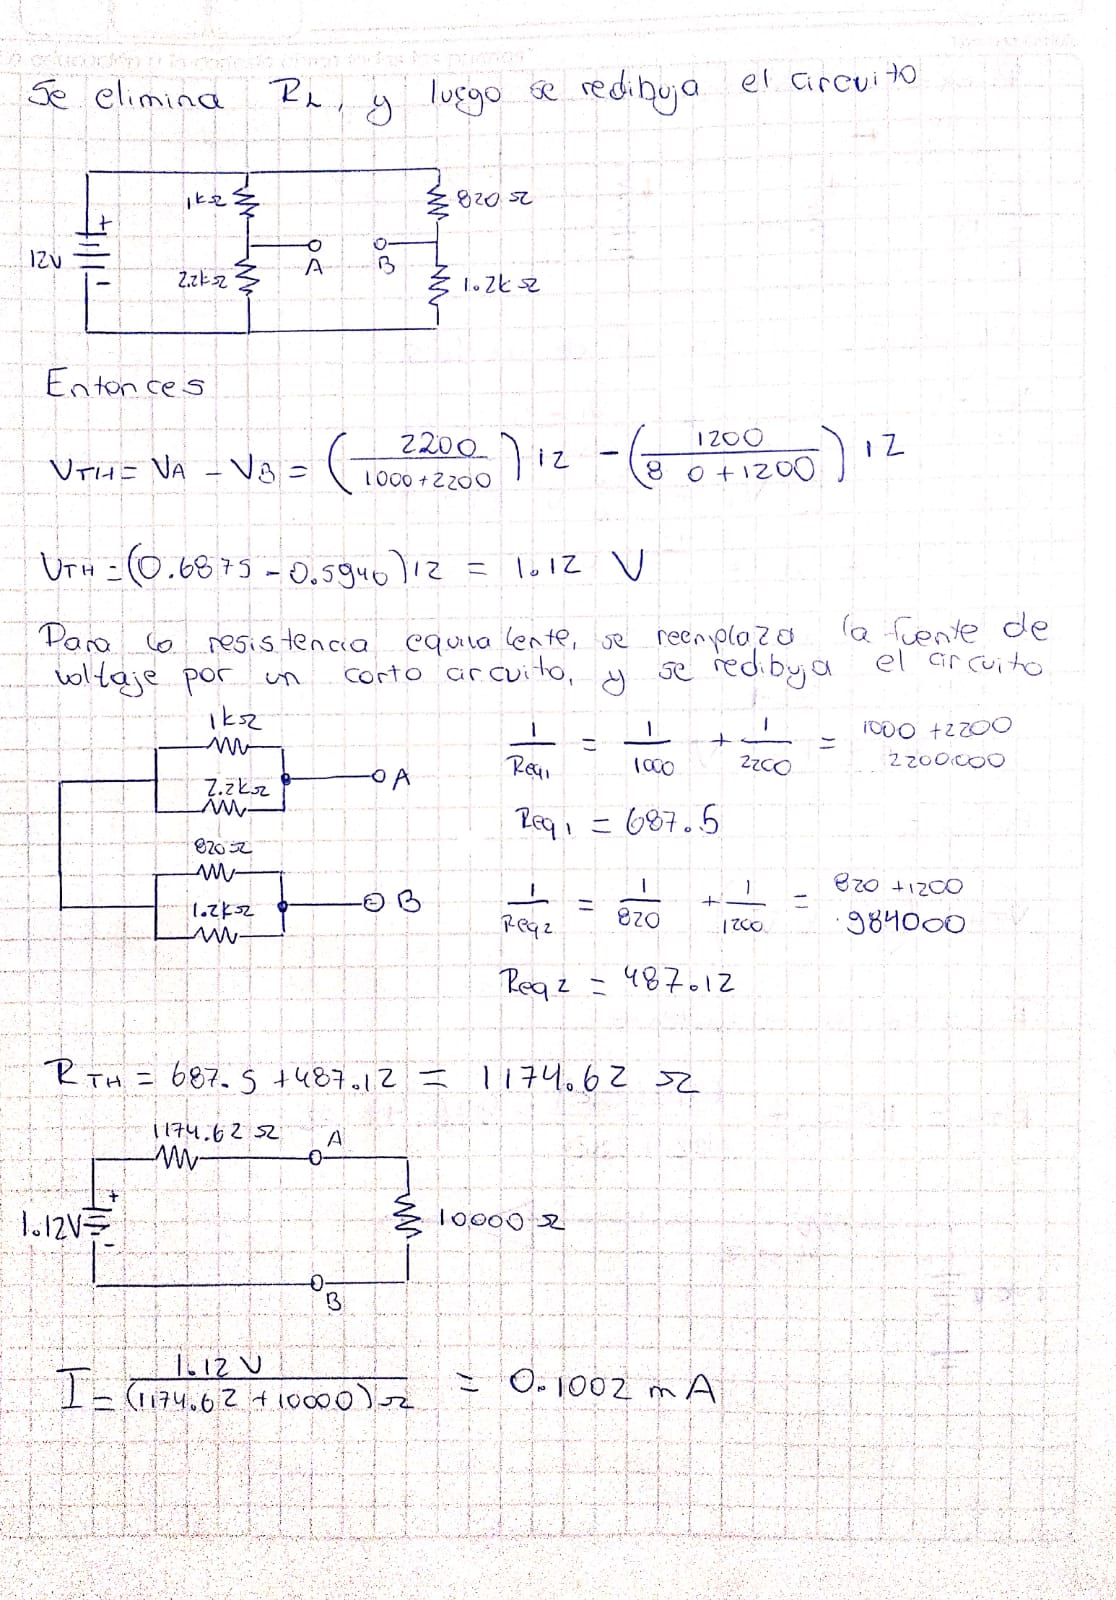 Se elimina RL, y luego se redibuja el circuito
1kΩ
820 Ω
12V
+
-
A
B
2.2kΩ
1.2kΩ
Entonces
VTH = VA - VB = (2200 / 1000+2200) 12 - (1200 / 8 0+1200) 12
VTH = (0.6875 - 0.5940)12 = 1.12 V
Para la resistencia equivalente, se reemplaza la fuente de
voltaje por un corto circuito, y se redibuja el circuito
1kΩ
2.2kΩ
A
820Ω
1.2kΩ
B
1/Req1 = 1/1000 + 1/2200 = 1000 + 2200 / 2200000
Req1 = 687.5
1/Req2 = 1/820 + 1/1200 = 820 + 1200 / 984000
Req2 = 487.12
RTH = 687.5 + 487.12 = 1174.62 Ω
1174.62 Ω
A
+
1.12V
-
10000 Ω
B
I = 1.12 V / (1174.62 + 10000)Ω = 0.1002 mA